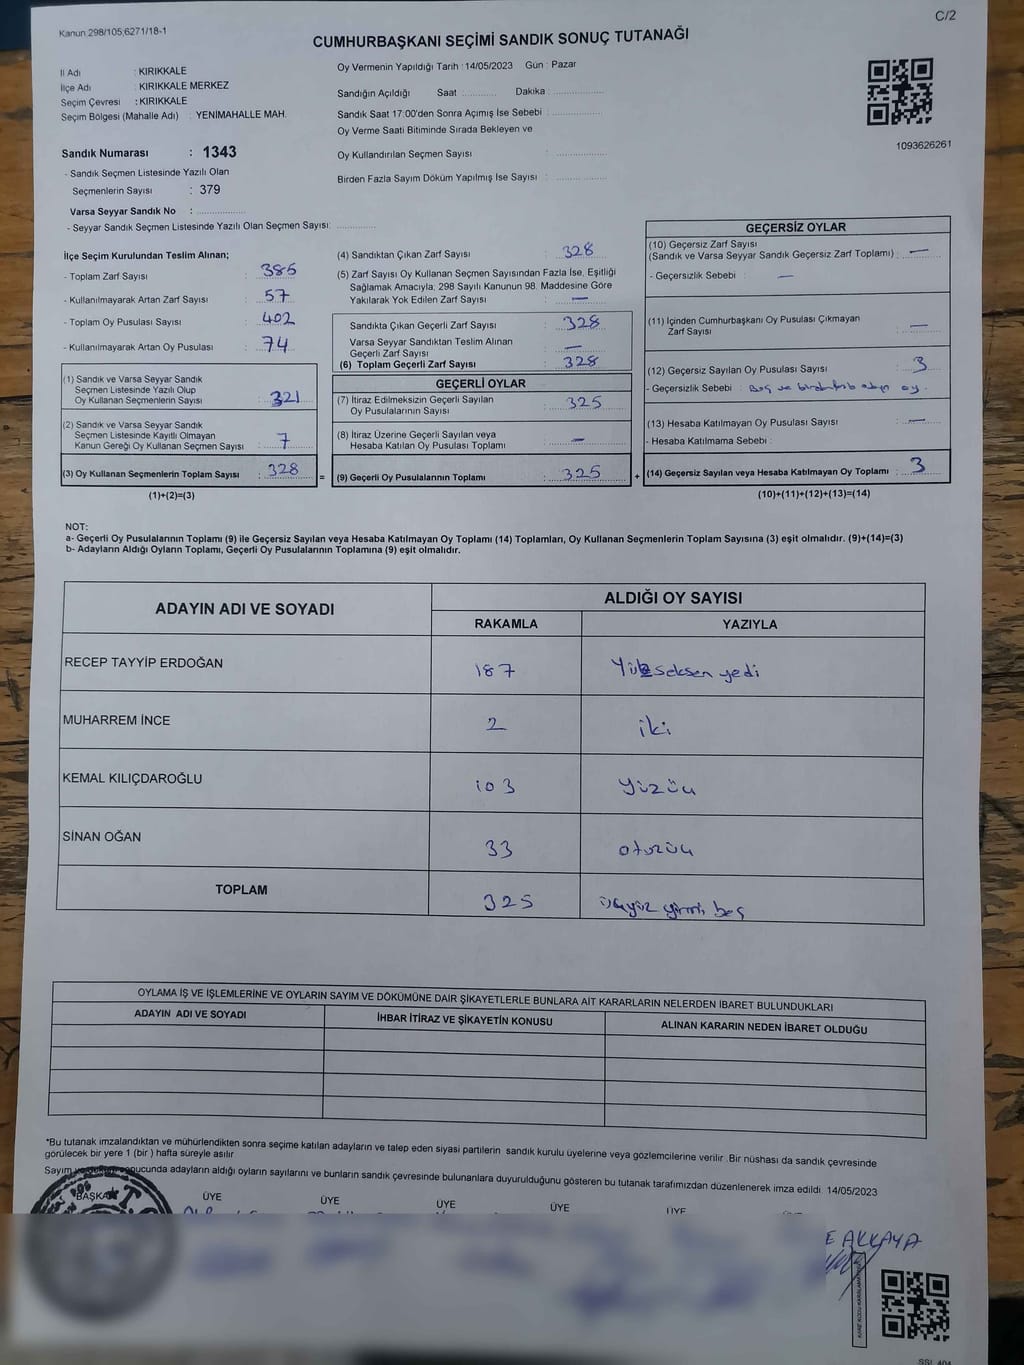 Kanun 298/105,6271/18-1
C/2
CUMHURBAŞKANI SEÇİMİ SANDIK SONUÇ TUTANAĞI
İl Adı : KIRIKKALE
İlçe Adı : KIRIKKALE MERKEZ
Seçim Çevresi : KIRIKKALE
Seçim Bölgesi (Mahalle Adı) YENİMAHALLE MAH.
Sandık Numarası : 1343
- Sandık Seçmen Listesinde Yazılı Olan
Seçmenlerin Sayısı : 379
Varsa Seyyar Sandık No :
- Seyyar Sandık Seçmen Listesinde Yazılı Olan Seçmen Sayısı:
Oy Vermenin Yapıldığı Tarih : 14/05/2023 Gün : Pazar
Sandığın Açıldığı Saat Dakika
Sandık Saat 17:00'den Sonra Açımış İse Sebebi :
Oy Verme Saati Bitiminde Sırada Bekleyen ve
Oy Kullandırılan Seçmen Sayısı :
Birden Fazla Sayım Döküm Yapılmış İse Sayısı :
1093626261
İlçe Seçim Kurulundan Teslim Alınan;
- Toplam Zarf Sayısı : 385
- Kullanılmayarak Artan Zarf Sayısı : 57
- Toplam Oy Pusulası Sayısı : 402
- Kullanılmayarak Artan Oy Pusulası : 74
(1) Sandık ve Varsa Seyyar Sandık
Seçmen Listesinde Yazılı Olup
Oy Kullanan Seçmenlerin Sayısı : 321
(2) Sandık ve Varsa Seyyar Sandık
Seçmen Listesinde Kayıtlı Olmayan
Kanun Gereği Oy Kullanan Seçmen Sayısı : 7
(3) Oy Kullanan Seçmenlerin Toplam Sayısı : 328 =
(1)+(2)=(3)
(4) Sandıktan Çıkan Zarf Sayısı : 328
(5) Zarf Sayısı Oy Kullanan Seçmen Sayısından Fazla İse, Eşitliği
Sağlamak Amacıyla; 298 Sayılı Kanunun 98. Maddesine Göre
Yakılarak Yok Edilen Zarf Sayısı : —
Sandıkta Çıkan Geçerli Zarf Sayısı : 328
Varsa Seyyar Sandıktan Teslim Alınan
Geçerli Zarf Sayısı : —
(6) Toplam Geçerli Zarf Sayısı : 328
GEÇERLİ OYLAR
(7) İtiraz Edilmeksizin Geçerli Sayılan
Oy Pusulalarının Sayısı : 325
(8) İtiraz Üzerine Geçerli Sayılan veya
Hesaba Katılan Oy Pusulası Toplamı : —
(9) Geçerli Oy Pusulalarının Toplamı : 325 +
GEÇERSİZ OYLAR
(10) Geçersiz Zarf Sayısı
(Sandık ve Varsa Seyyar Sandık Geçersiz Zarf Toplamı) : —
- Geçersizlik Sebebi : —
(11) İçinden Cumhurbaşkanı Oy Pusulası Çıkmayan
Zarf Sayısı : —
(12) Geçersiz Sayılan Oy Pusulası Sayısı : 3
- Geçersizlik Sebebi : Boş ve oy.
(13) Hesaba Katılmayan Oy Pusulası Sayısı : —
- Hesaba Katılmama Sebebi :
(14) Geçersiz Sayılan veya Hesaba Katılmayan Oy Toplamı : 3
(10)+(11)+(12)+(13)=(14)
NOT:
a- Geçerli Oy Pusulalarının Toplamı (9) ile Geçersiz Sayılan veya Hesaba Katılmayan Oy Toplamı (14) Toplamları, Oy Kullanan Seçmenlerin Toplam Sayısına (3) eşit olmalıdır. (9)+(14)=(3)
b- Adayların Aldığı Oyların Toplamı, Geçerli Oy Pusulalarının Toplamına (9) eşit olmalıdır.
ADAYIN ADI VE SOYADI ALDIĞI OY SAYISI
RAKAMLA YAZIYLA
RECEP TAYYİP ERDOĞAN 187 Yükseksen yedi
MUHARREM İNCE 2 iki
KEMAL KILIÇDAROĞLU 103 yüzüç
SİNAN OĞAN 33 otuzüç
TOPLAM 325 üçyüz yirmi beş
OYLAMA İŞ VE İŞLEMLERİNE VE OYLARIN SAYIM VE DÖKÜMÜNE DAİR ŞİKAYETLERLE BUNLARA AİT KARARLARIN NELERDEN İBARET BULUNDUKLARI
ADAYIN ADI VE SOYADI İHBAR İTİRAZ VE ŞİKAYETİN KONUSU ALINAN KARARIN NEDEN İBARET OLDUĞU
*Bu tutanak imzalandıktan ve mühürlendikten sonra seçime katılan adayların ve talep eden siyasi partilerin sandık kurulu üyelerine veya gözlemcilerine verilir .Bir nüshası da sandık çevresinde
görülecek bir yere 1 (bir ) hafta süreyle asılır
Sayım sonucunda adayların aldığı oyların sayılarını ve bunların sandık çevresinde bulunanlara duyurulduğunu gösteren bu tutanak tarafımızdan düzenlenerek imza edildi. 14/05/2023
BAŞKAN ÜYE ÜYE ÜYE ÜYE ÜYE
E AKKAYA